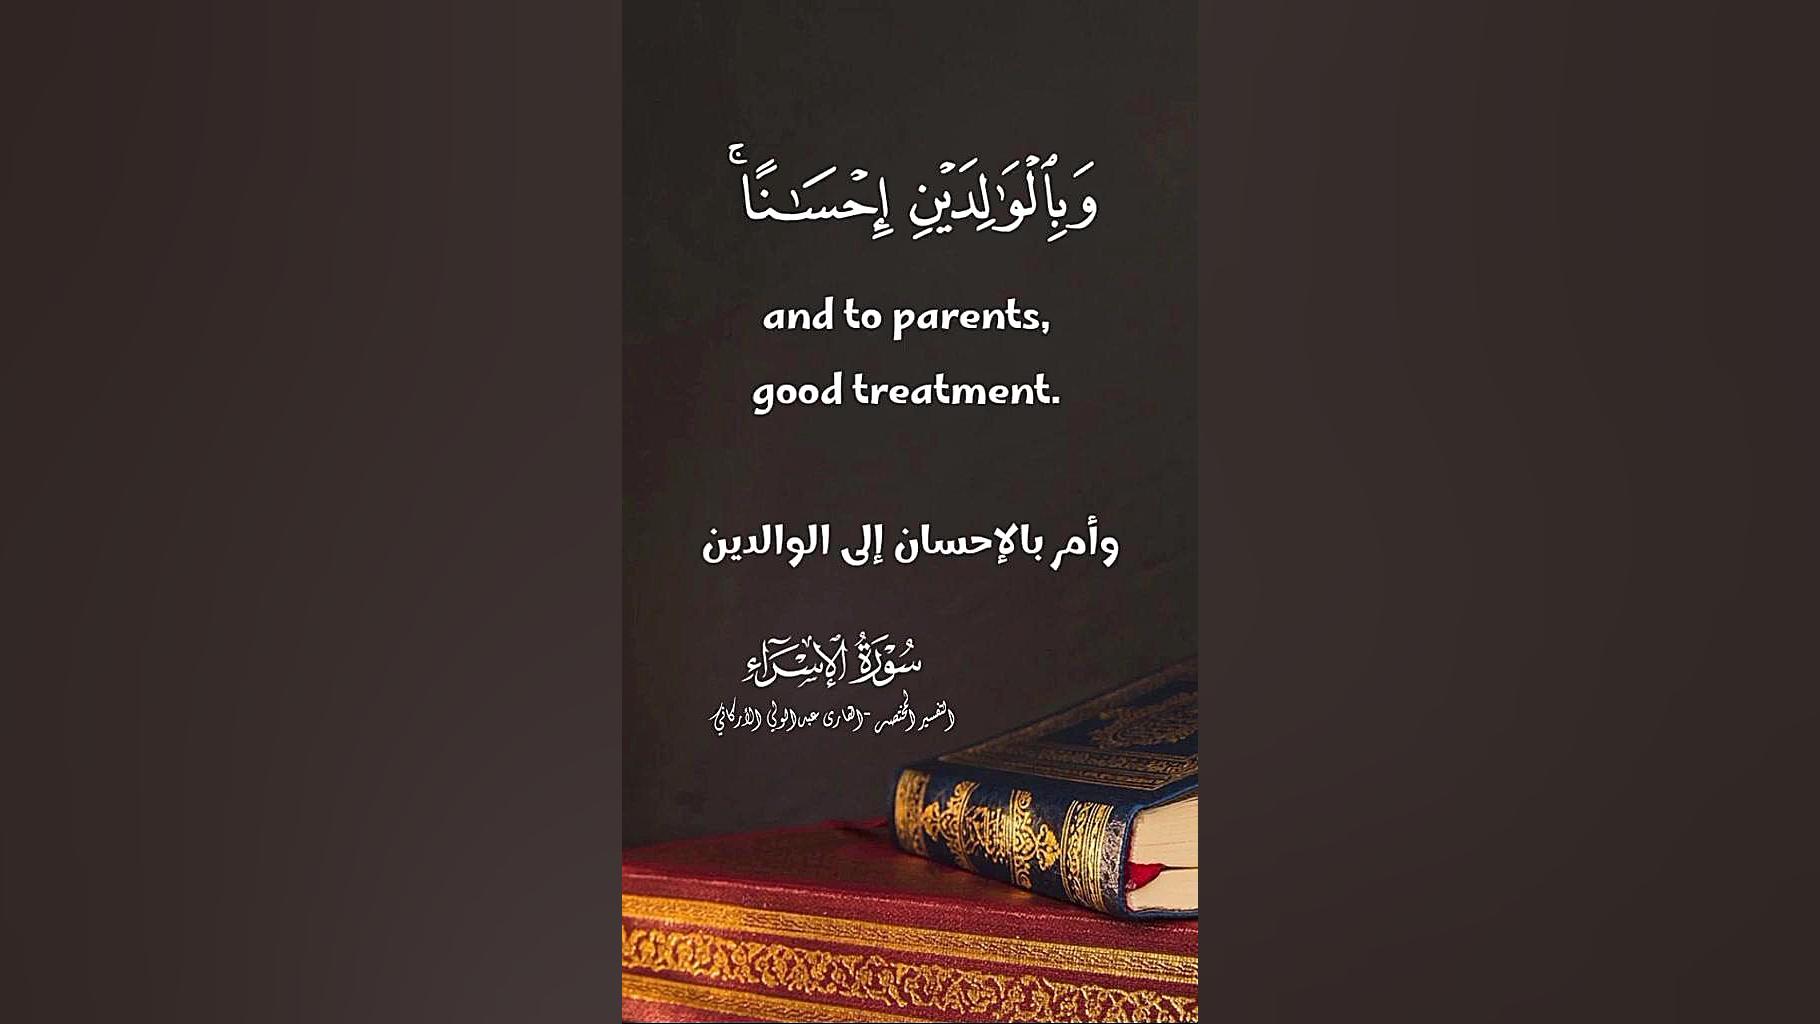 وَبِٱلْوَٰلِدَيْنِ إِحْسَـٰنًا ۚ
and to parents,
good treatment.
وأمر بالإحسان إلى الوالدين
سُورَةُ الإِسْرَاءِ
التفسير المختصر - القارئ عبدالولي الأركاني